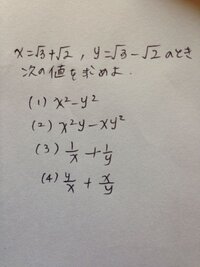 x=√3+√2, y=√3-√2 のとき
次の値を求めよ.
(1) x²-y²
(2) x²y-xy²
(3) 1/x + 1/y
(4) y/x + x/y